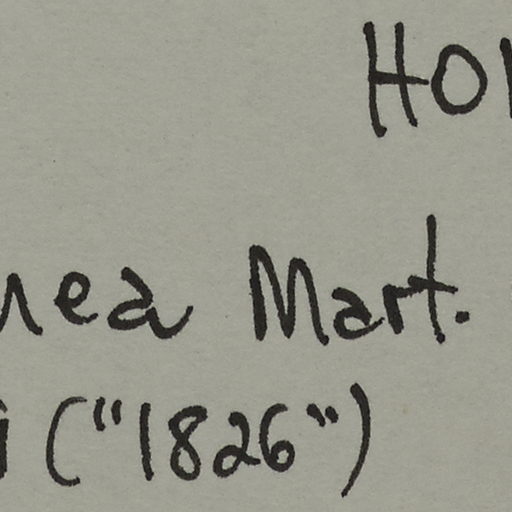 HO
nea Mart.
i ("1826")